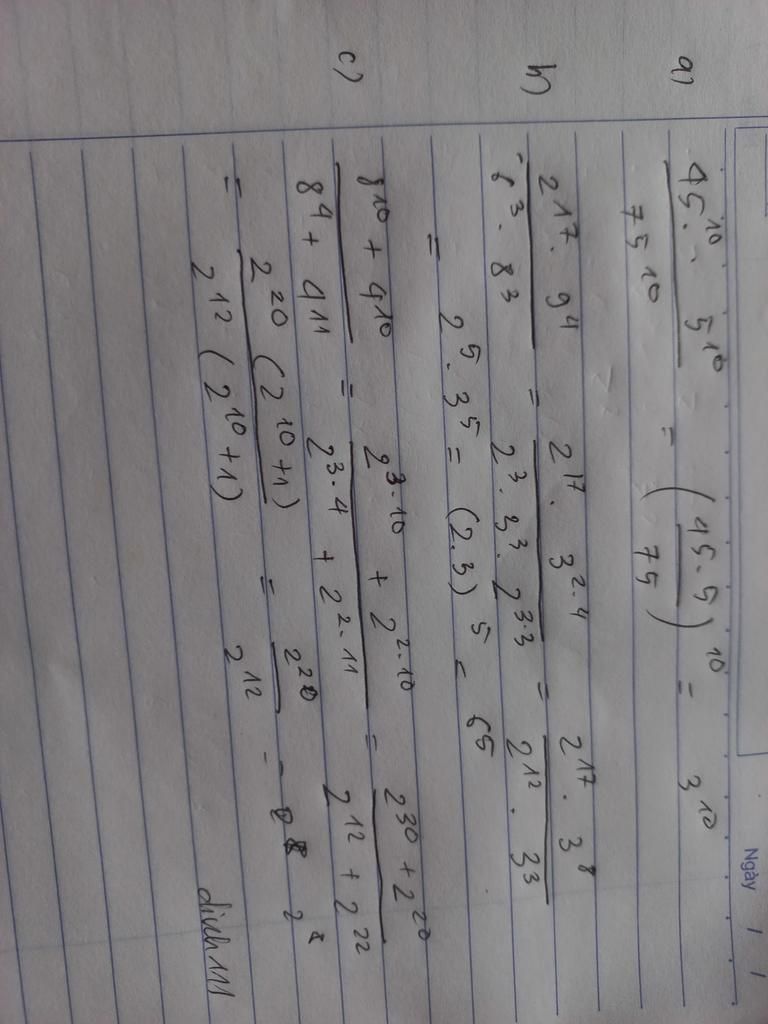 Ngày / /
a) 45^10 . 5^10 / 75^10 = (45.5 / 75)^10 = 3^10
b) 2^17 . 9^4 / 6^3 . 8^3 = 2^17 . 3^2.4 / 2^3 . 3^3 . 2^3.3 = 2^17 . 3^8 / 2^12 . 3^3
= 2^5 . 3^5 = (2.3)^5 = 6^5
c) 8^10 + 4^10 / 8^4 + 4^11 = 2^3.10 + 2^2.10 / 2^3.4 + 2^2.11 = 2^30 + 2^20 / 2^12 + 2^22
= 2^20 (2^10 +1) / 2^12 (2^10 +1) = 2^20 / 2^12 = 2^8